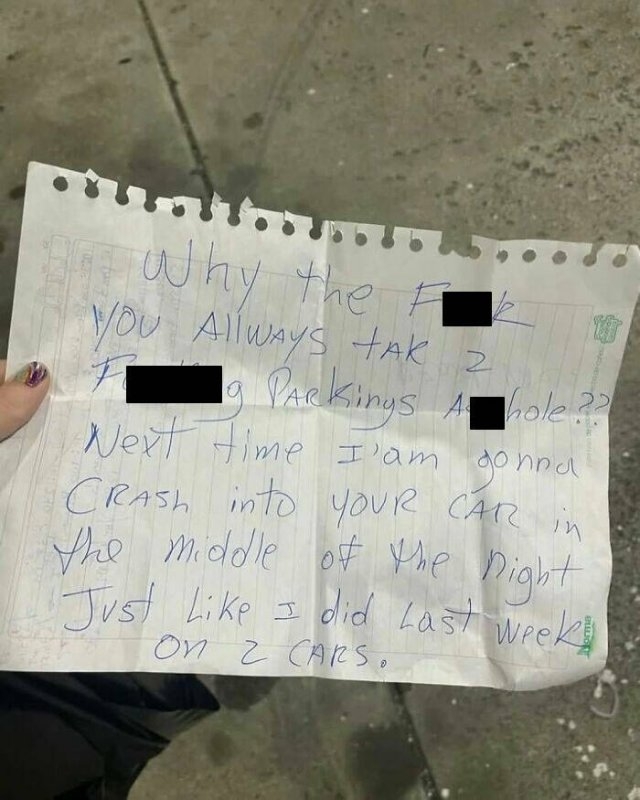 Why the F k
YOU AllWAYS tAK 2
F g PARKings A hole??
Next time I'am gonna
CRASH into YOUR CAR in
the Middle of the Night
Just Like I did Last week
ON 2 CARS.
norma